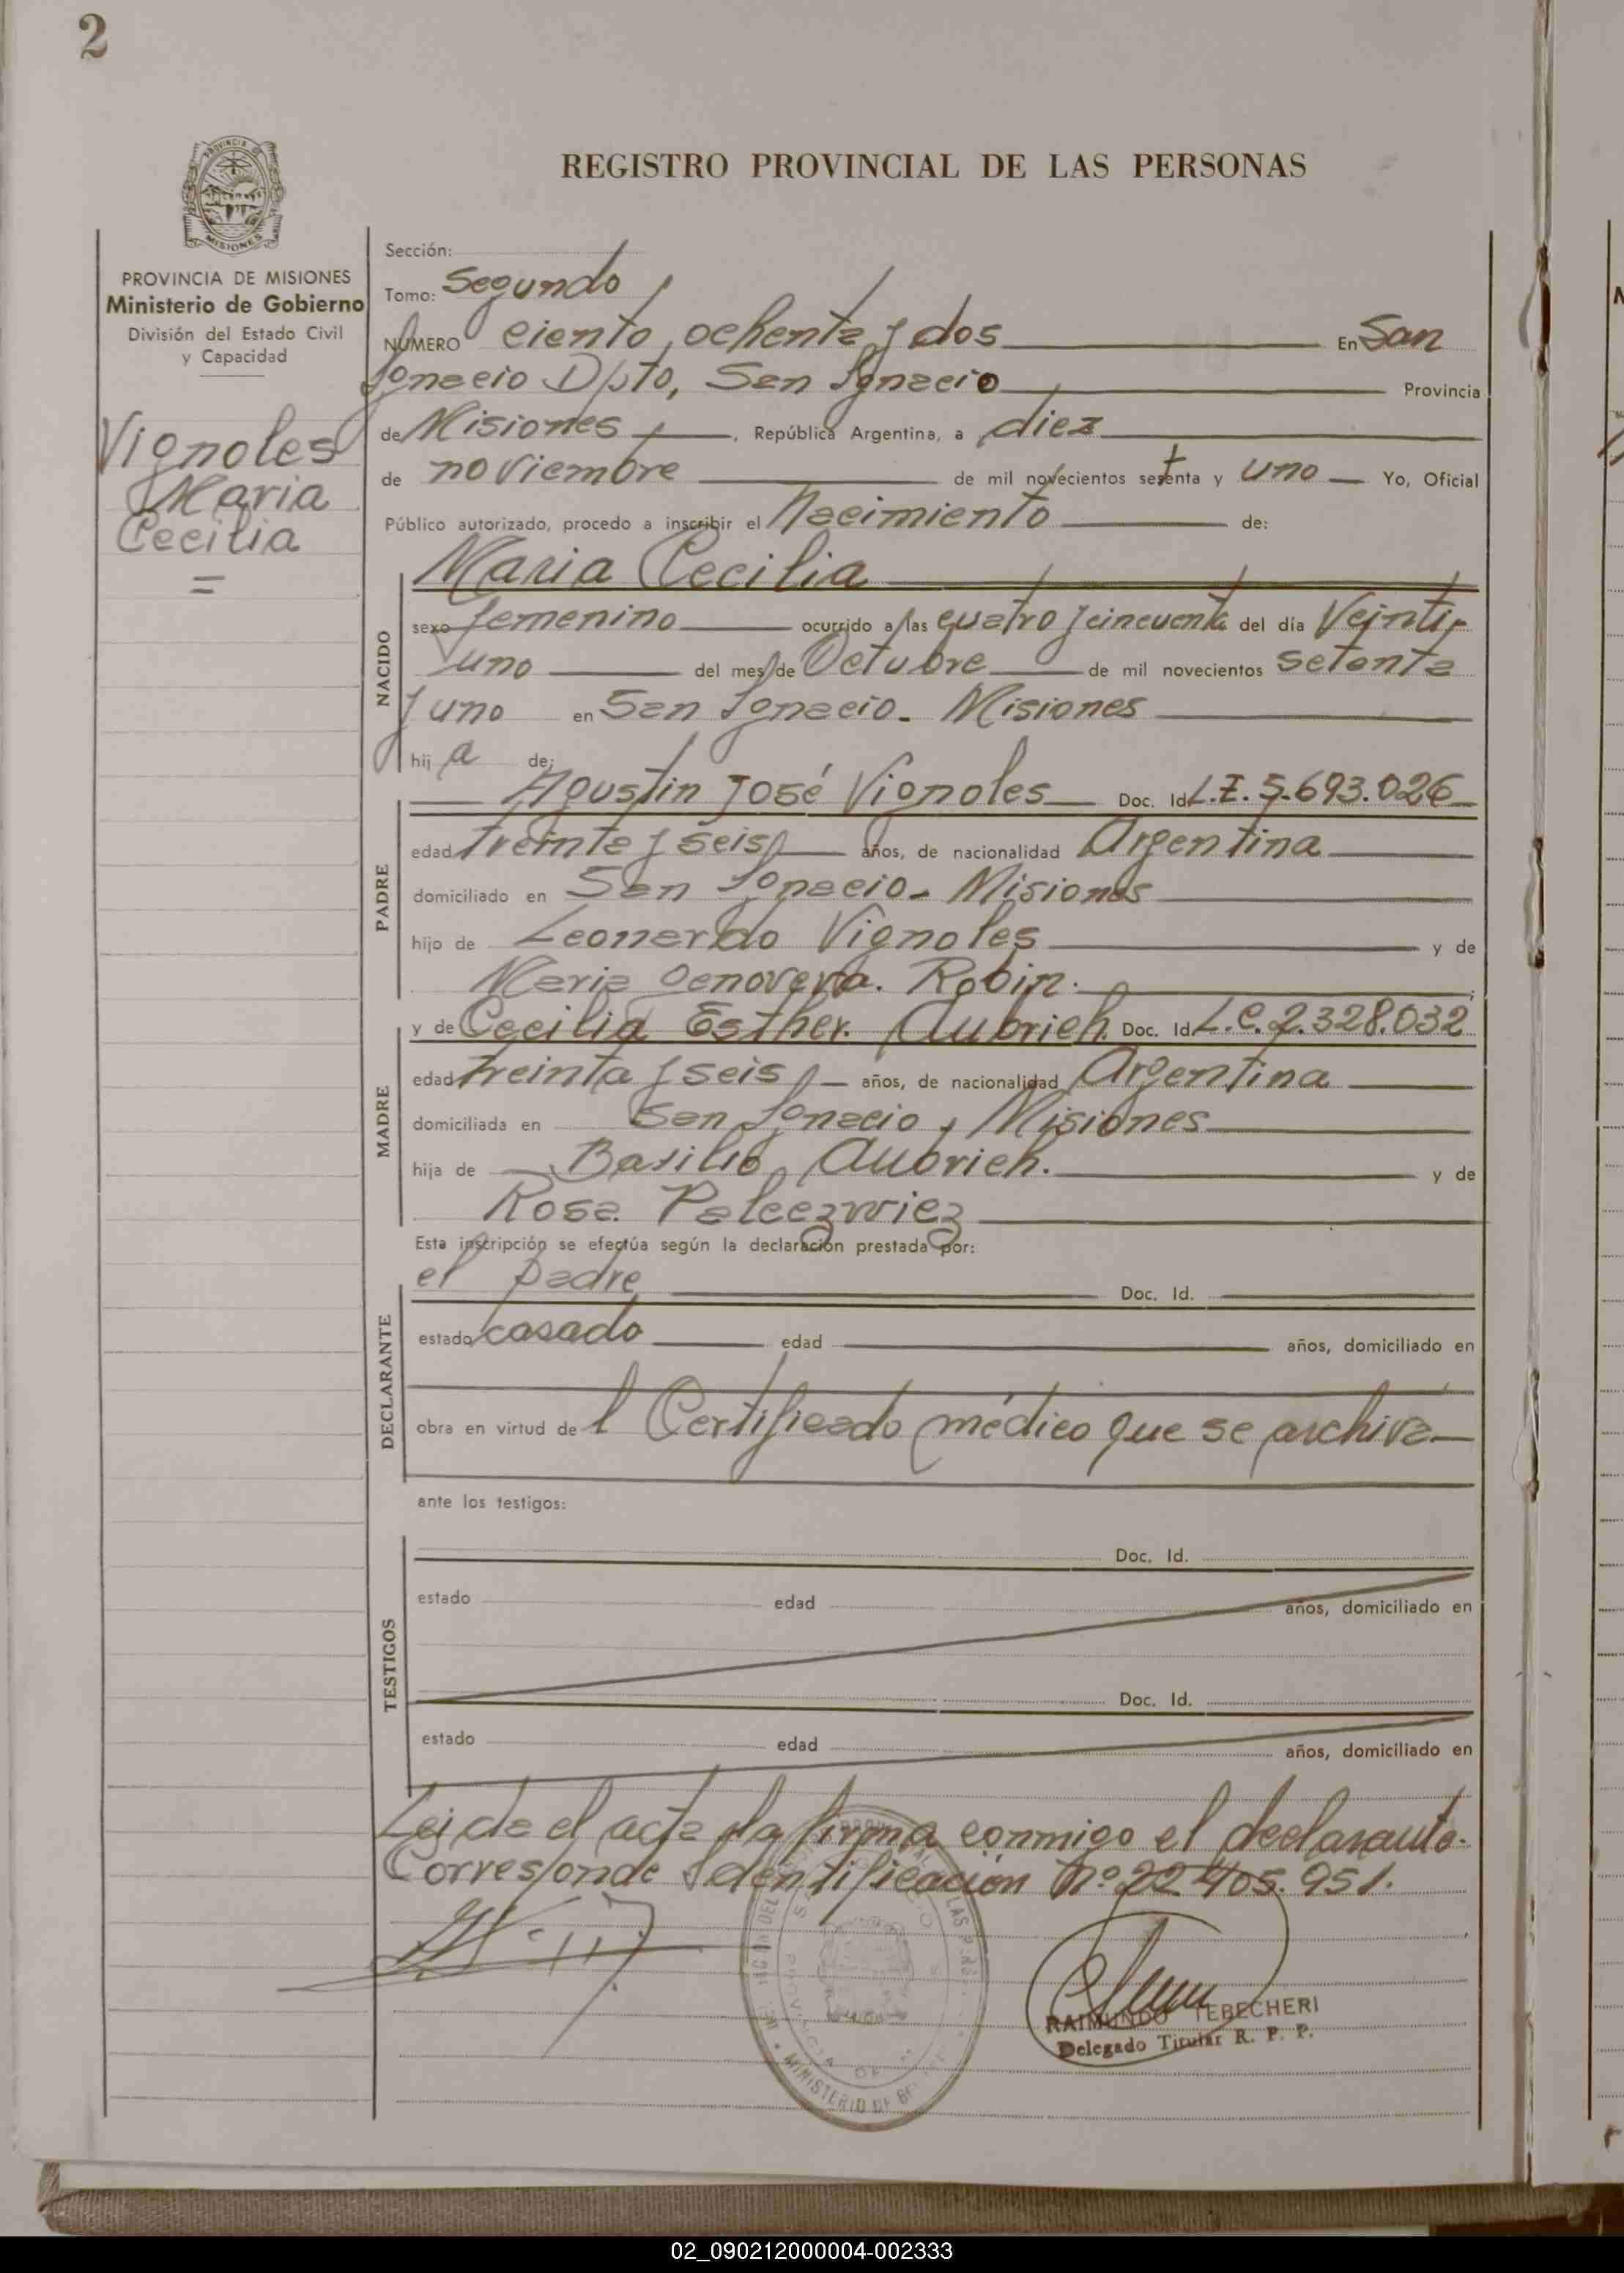 2
REGISTRO PROVINCIAL DE LAS PERSONAS
PROVINCIA DE MISIONES
Ministerio de Gobierno
División del Estado Civil
y Capacidad
Vignoles
Maria
Cecilia
=
Sección:
Tomo: Segundo
NÚMERO ciento ochenta y dos En San
Ignacio Dpto, San Ignacio Provincia
de Misiones, República Argentina, a diez
de noviembre de mil novecientos setenta y uno Yo, Oficial
Público autorizado, procedo a inscribir el Nacimiento de:
NACIDO
Maria Cecilia
sexo femenino ocurrido a las cuatro y cincuenta del día Veinti
uno del mes de Octubre de mil novecientos setenta
y uno en San Ignacio. Misiones
hij a de:
PADRE
Agustin José Vignoles Doc. Id. L.E. 5.693.026
edad treinta y seis años, de nacionalidad Argentina
domiciliado en San Ignacio. Misiones
hijo de Leonardo Vignoles y de
Maria Genoveva. Robin.
MADRE
y de Cecilia Esther. Aubrich. Doc. Id. L.C. 2.328.032
edad treinta y seis años, de nacionalidad Argentina
domiciliada en San Ignacio, Misiones
hija de Basilio Aubrich. y de
Rosa Palcezwicz
Esta inscripción se efectúa según la declaración prestada por:
DECLARANTE
el padre Doc. Id.
estado casado edad años, domiciliado en
obra en virtud de l Certificado médico que se archiva
ante los testigos:
TESTIGOS
Doc. Id.
estado edad años, domiciliado en
Doc. Id.
estado edad años, domiciliado en
Leida el acta la firma conmigo el declarante.
Corresponde Identificación Nº 22.405.951.
RAIMUNDO TEBECHERI
Delegado Titular R. P. P.
02_090212000004-002333